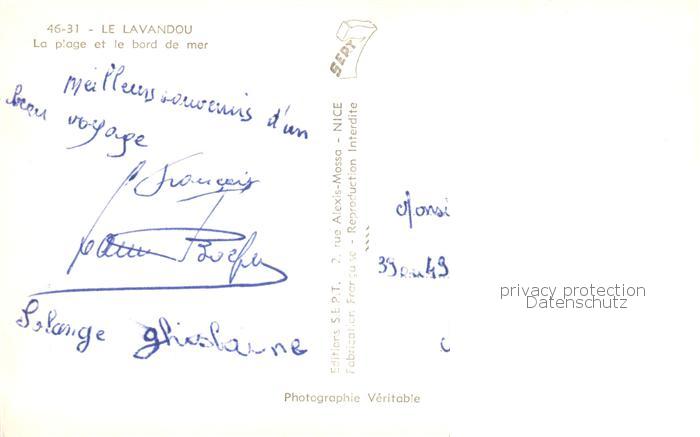 46-31 - LE LAVANDOU
La plage et le bord de mer
SEPT
meilleurs souvenirs d'un
beau voyage
François
Solange Ghislaine
Editions S.E.P.T. 2, rue Alexis-Mossa - NICE
Fabrication Française - Reproduction Interdite
Monsi
39
49
privacy protection
Datenschutz
Photographie Véritable